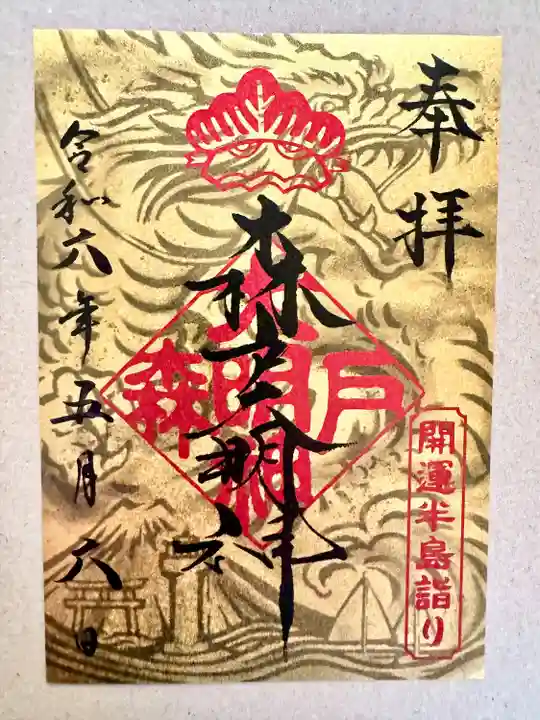 奉拝
森戸大明神
森戸大明神
開運半島詣り
令和六年五月六日